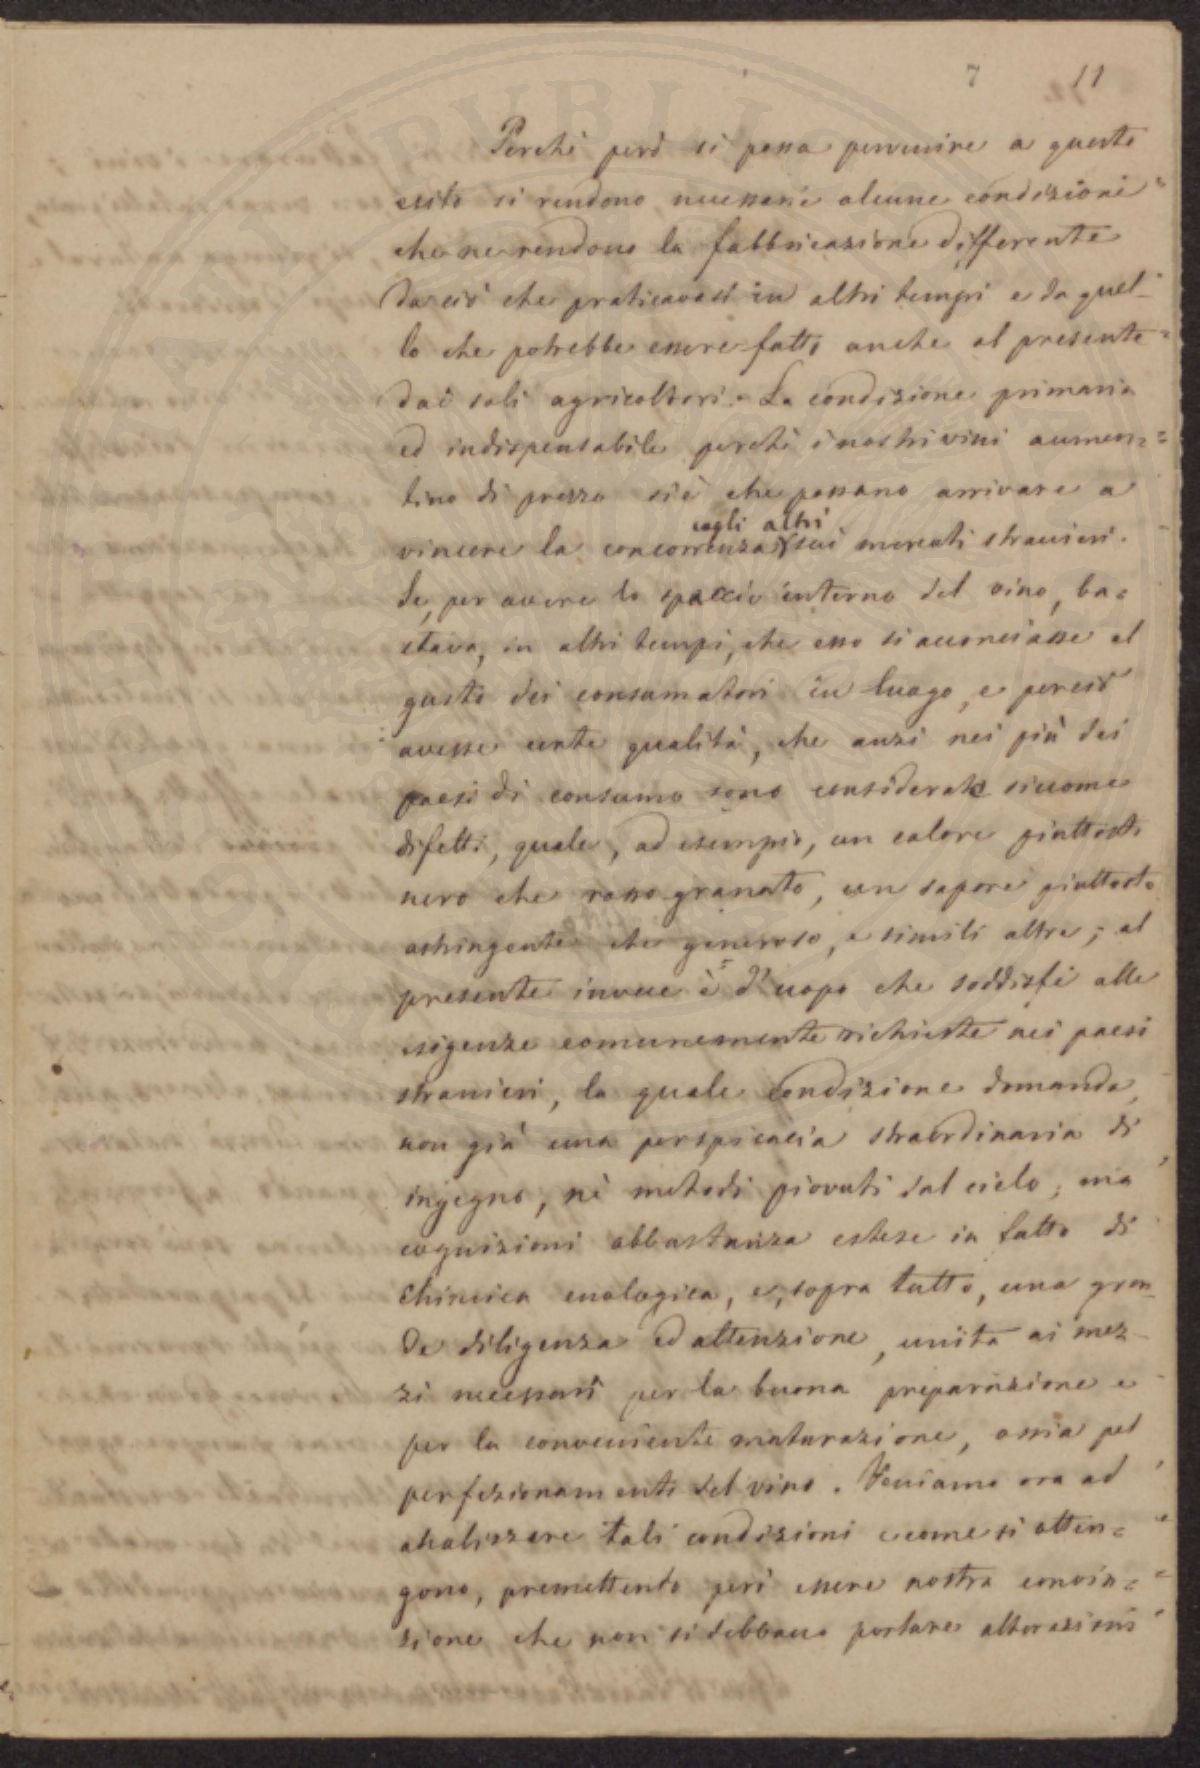 7 11
Perchè però si possa pervenire a questo
esito si rendono necessarie alcune condizioni
che ne rendono la fabbricazione differente
da ciò che praticavasi in altri tempi e da quel-
lo che potrebbe essere fatto anche al presente
dai soli agricoltori. La condizione primaria
ed indispensabile perchè i nostri vini aumen=
tino di prezzo si è che possano arrivare a
cogli altri
vincere la concorrenza sui mercati stranieri.
Se, per avere lo spaccio interno del vino, ba=
stava, in altri tempi, che esso si acconciasse al
gusto dei consumatori in luogo, e perciò
avesse certe qualità, che anzi nei più dei
paesi di consumo sono considerate siccome
difetti, quale, ad esempio, un colore piuttosto
nero che rosso granato, un sapore piuttosto
astringente che generoso, e simili altre; al
presente invece è d'uopo che soddisfi alle
esigenze comunemente richieste nei paesi
stranieri, la quale condizione domanda,
non già una perspicacia straordinaria di
ingegno, nè metodi piovuti dal cielo, ma
cognizioni abbastanza estese in fatto di
chimica enologica, e, sopra tutto, una gran-
de diligenza ed attenzione, unita ai mez-
zi necessarî per la buona preparazione e
per la conveniente maturazione, ossia pel
perfezionamento del vino. Veniamo ora ad
analizzare tali condizioni e come si otten=
gono, premettendo però essere nostra convin=
zione che non si debbano portare alterazioni